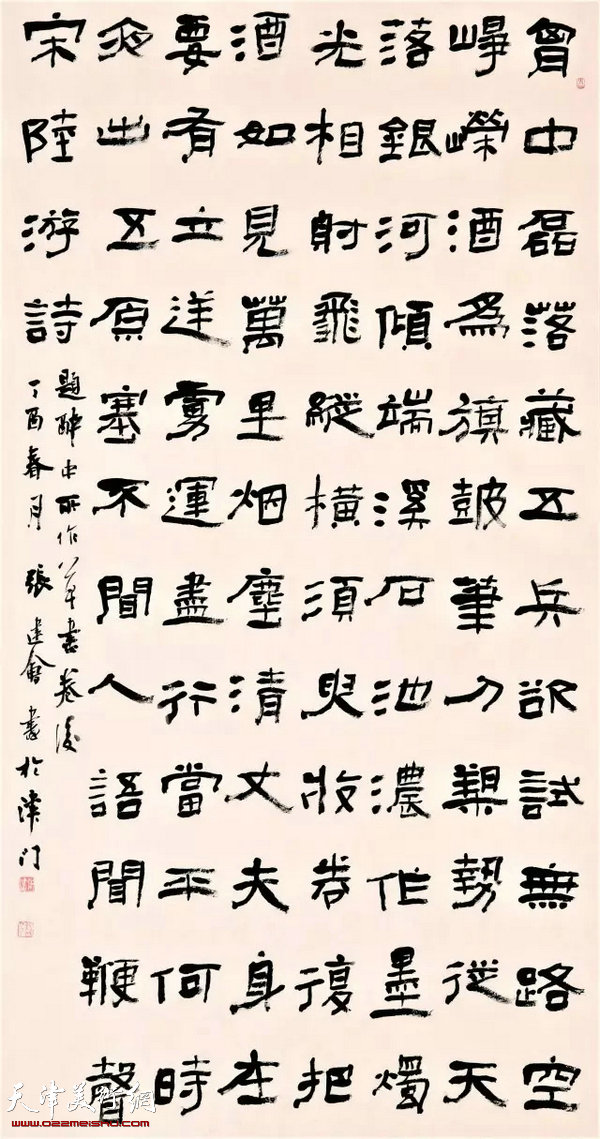 胷中磊落藏五兵欲試無路空
崢嶸酒為旗鼓筆刀槊勢從天
落銀河傾端溪石池濃作墨燭
光相射飛縱橫須臾收卷復把
酒如見萬里烟塵清丈夫身在
要有立逆虜運盡行當平何時
夜出五原塞不聞人語聞鞭聲
宋陸游詩
題醉中所作草書卷後
丁酉春月張建會書於津門
天津美術網
www.022meishu.com